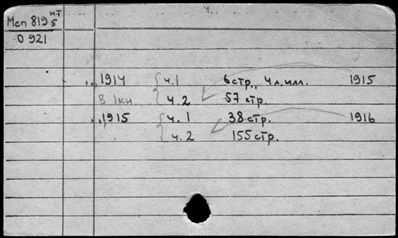 ч.
Мсп 819 5 ит
0 921
„1914 ч.1 6 стр., 4 л. илл. 1915
В 1 кн. ч.2 57 стр.
„1915 ч.1 38 стр. 1916
ч.2 155 стр.